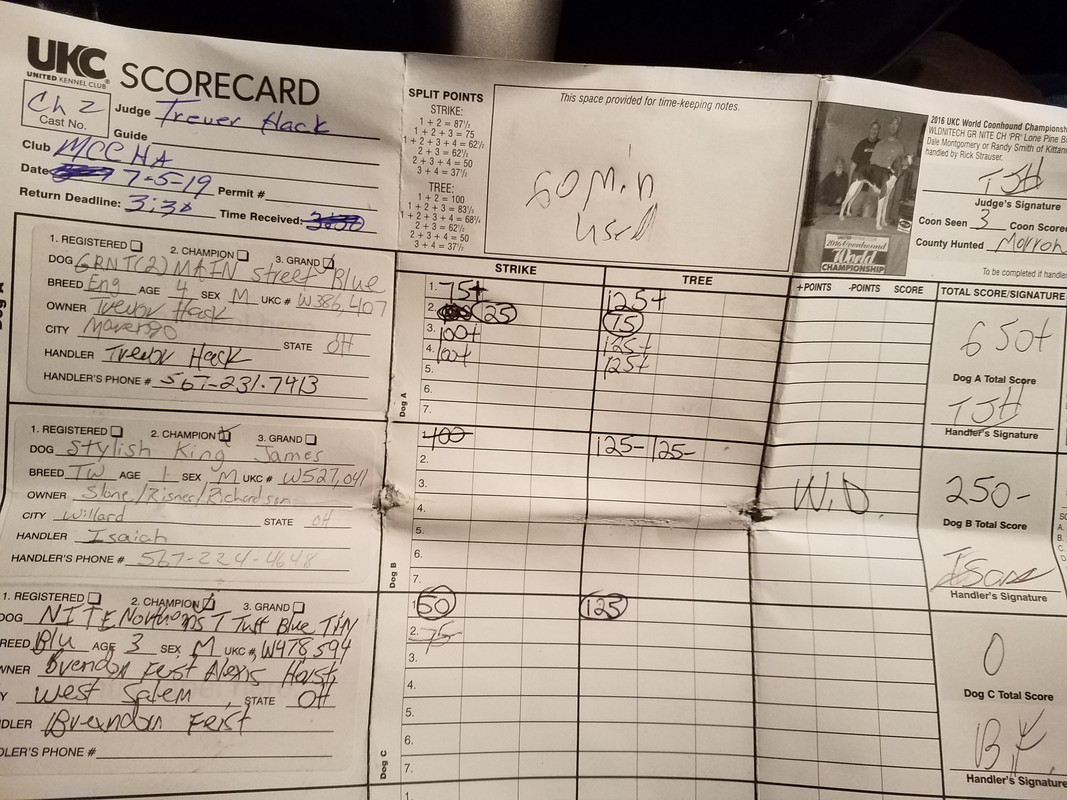 UKC
UNITED KENNEL CLUB
SCORECARD
Ch 2
Cast No.
Judge Trever Hack
Guide
Club MCCHA
Date 7-5-19 Permit #
Return Deadline: 3:30 Time Received:
SPLIT POINTS
STRIKE:
1 + 2 = 87½
1 + 2 + 3 = 75
1 + 2 + 3 + 4 = 62½
2 + 3 = 62½
2 + 3 + 4 = 50
3 + 4 = 37½
TREE:
1 + 2 = 100
1 + 2 + 3 = 83⅓
1 + 2 + 3 + 4 = 68¾
2 + 3 = 62½
2 + 3 + 4 = 50
3 + 4 = 37½
This space provided for time-keeping notes.
60 min
used
2016 UKC World Coonhound Championship
WLDNITECH GR NITE CH 'PR' Lone Pine
Dale Montgomery or Randy Smith of
handled by Rick Strauser.
2016 Coonhound
World
CHAMPIONSHIP
TJH
Judge's Signature
Coon Seen 3 Coon Score
County Hunted
To be completed if handler
STRIKE
TREE
+POINTS -POINTS SCORE
TOTAL SCORE/SIGNATURE
Dog A
1. REGISTERED 2. CHAMPION 3. GRAND
DOG GRNT(2) MAIN Street Blue
BREED Eng AGE 4 SEX M UKC # W386,407
OWNER Trevor Hack
CITY Marengo STATE OH
HANDLER Trevor Hack
HANDLER'S PHONE # 567-231-7413
1. 75+ 125+
2. 25 75
3. 100+ 125+
4. 100+ 125+
5.
6.
7.
Dog A
650+
Dog A Total Score
TJH
Handler's Signature
1. REGISTERED 2. CHAMPION 3. GRAND
DOG Stylish King James
BREED TW AGE 1 SEX M UKC # W527,041
OWNER Slone/Risner/Richardson
CITY Willard STATE OH
HANDLER Isaiah
HANDLER'S PHONE # 567-224-4648
1. 100 125- 125-
2.
3.
4.
5.
6.
7.
W.D.
Dog B
250-
Dog B Total Score
Handler's Signature
1. REGISTERED 2. CHAMPION 3. GRAND
DOG NITE T Tuff Blue
BREED Blu AGE 3 SEX M UKC # W478,594
OWNER Brendon Feist Alexis
West Salem STATE OH
DLER Brendon Feist
DLER'S PHONE #
1. 50 125
2. 75
3.
4.
5.
6.
7.
Dog C
0
Dog C Total Score
B.F.
Handler's Signature
1.